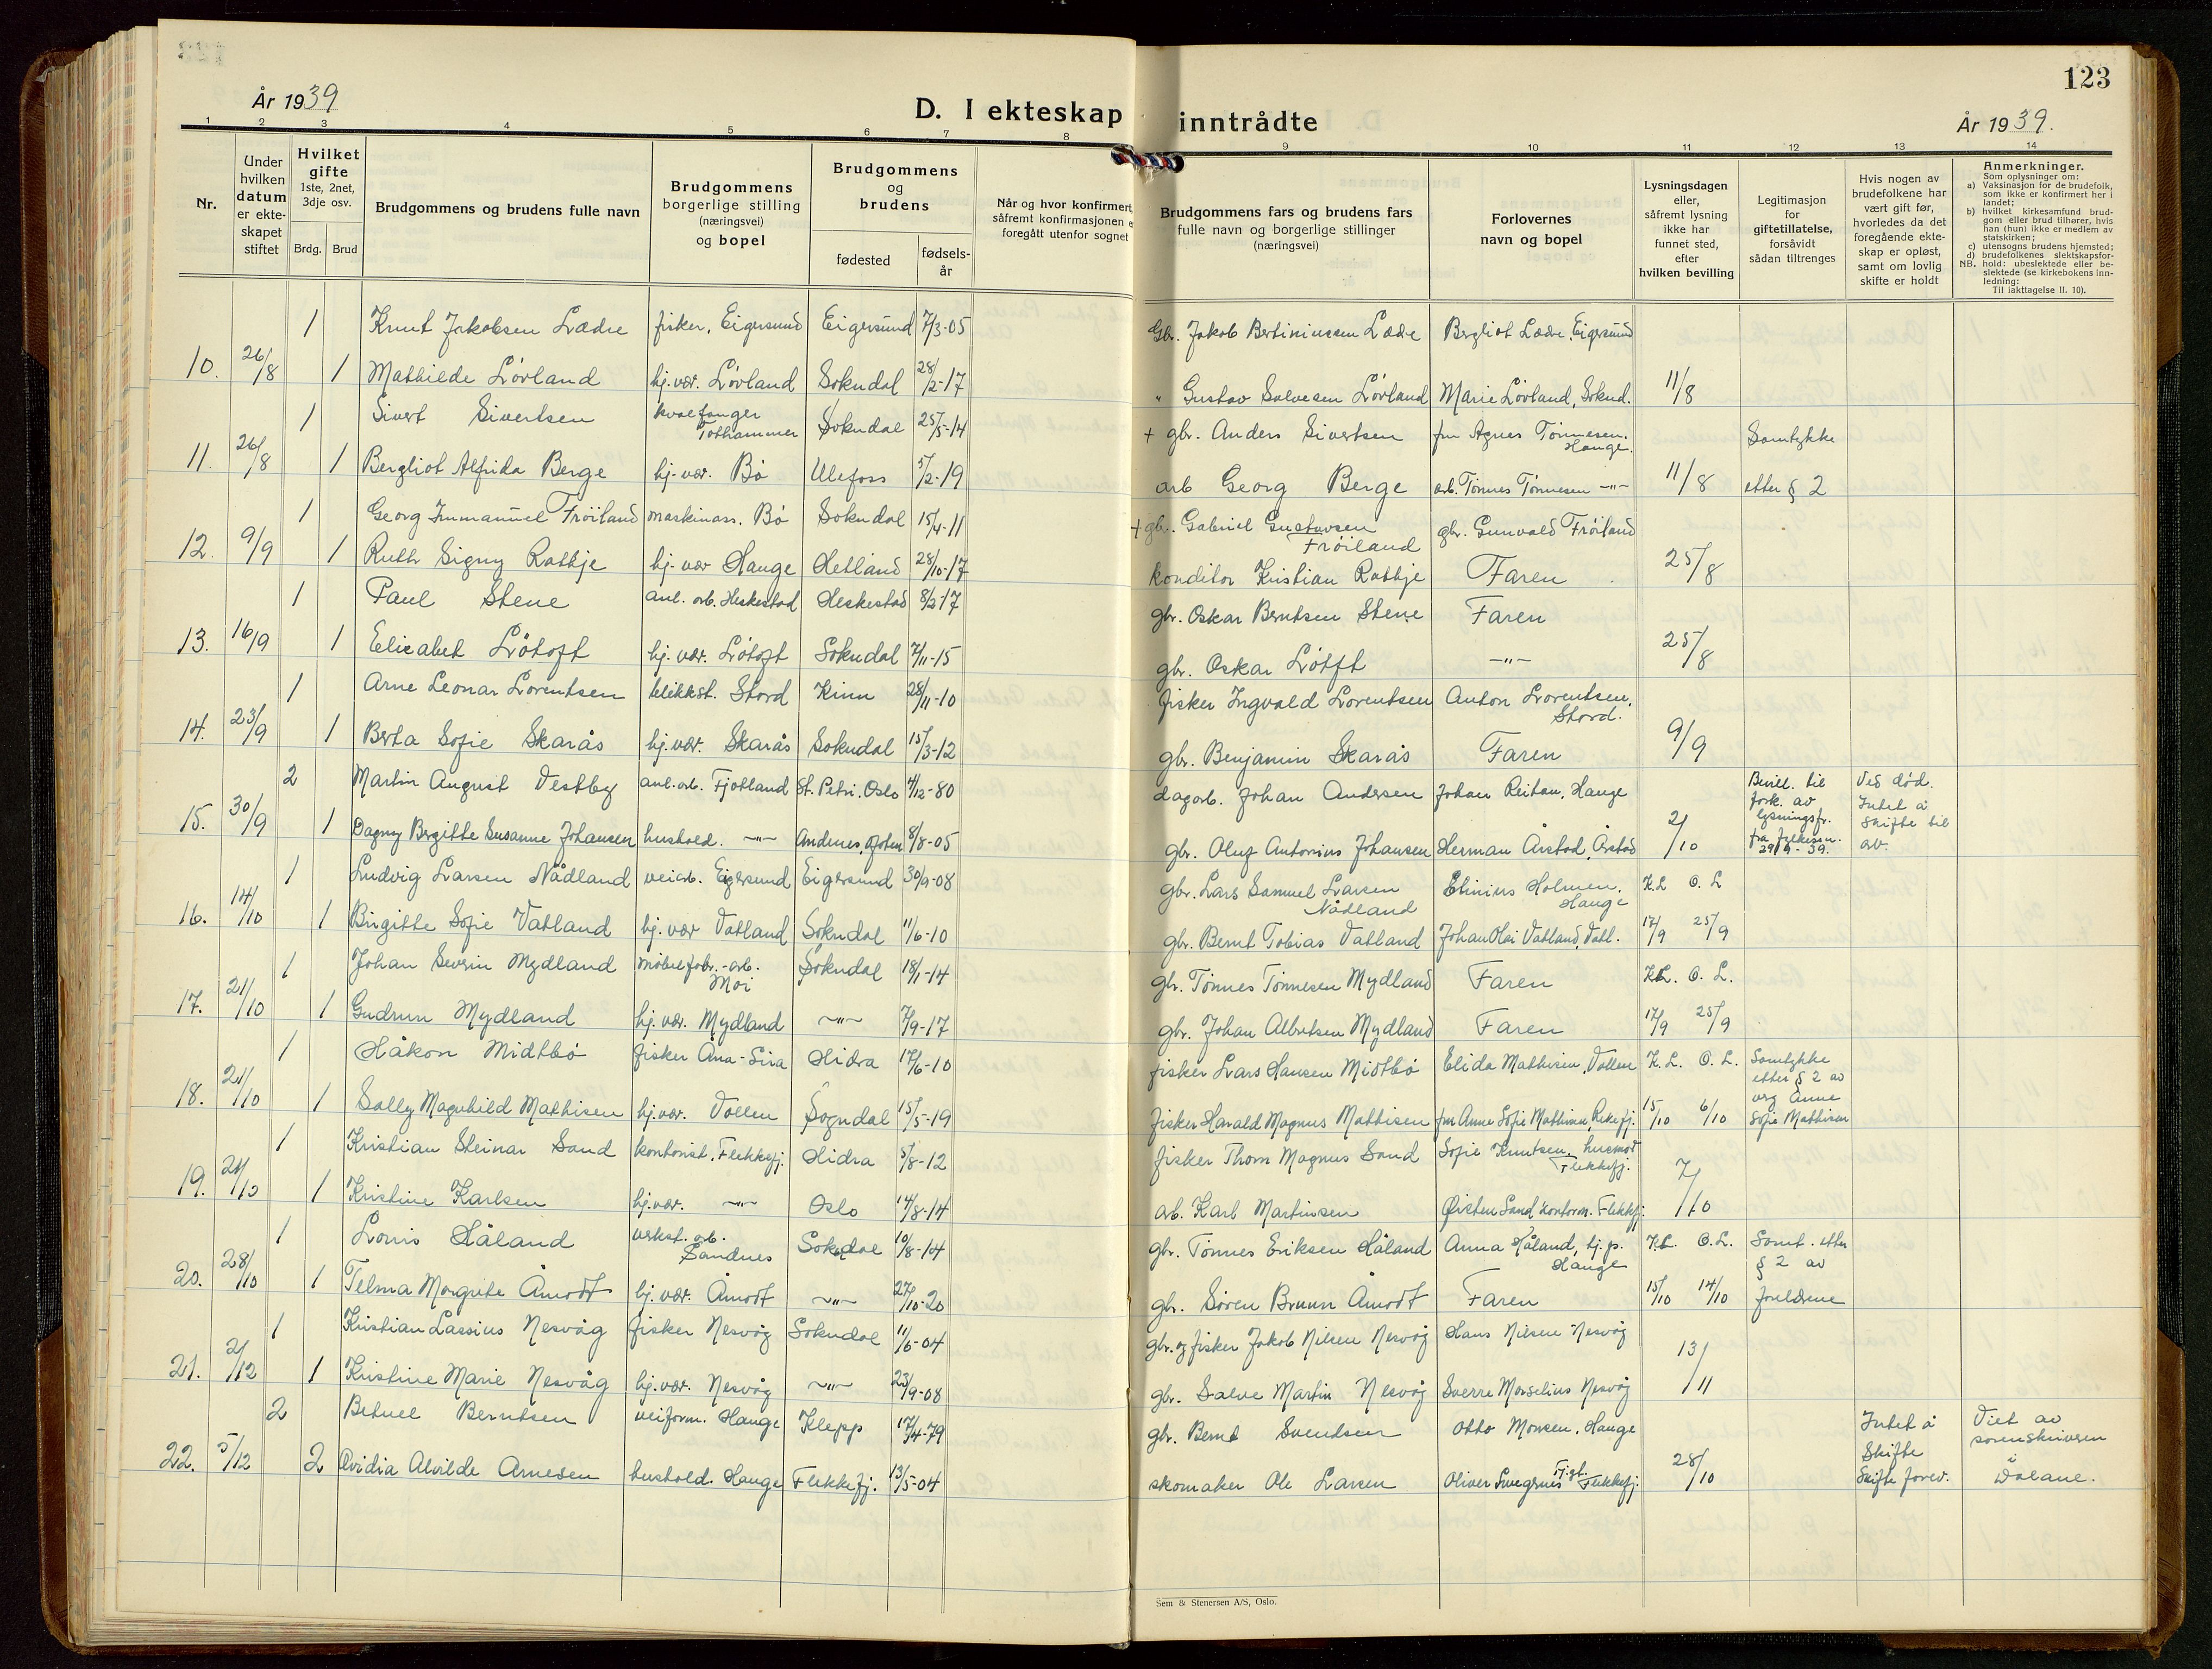 123
År 1939
År 1939.
D. I ekteskap inntrådte
1 2 3 4 5 6 7 8 9 10 11 12 13 14
Nr.
Under hvilken datum er ekte-skapet stiftet
Hvilket gifte 1ste, 2net, 3dje osv.
Brdg. Brud
Brudgommens og brudens fulle navn
Brudgommens borgerlige stilling (næringsvei) og bopel
Brudgommens og brudens
fødested
fødsels-år
Når og hvor konfirmert, såfremt konfirmasjonen e foregått utenfor sognet
Brudgommens fars og brudens fars fulle navn og borgerlige stillinger (næringsvei)
Forlovernes navn og bopel
Lysningsdagen eller, såfremt lysning ikke har funnet sted, efter hvilken bevilling
Legitimasjon for giftetillatelse, forsåvidt sådan tiltrenges
Hvis nogen av brudefolkene har vært gift før, hvorledes da det foregående ekte-skap er opløst, samt om lovlig skifte er holdt
Anmerkninger.
Som oplysninger om:
a) Vaksinasjon for de brudefolk, som ikke er konfirmert her i landet;
b) hvilket kirkesamfund brud-gom eller brud tilhører, hvis han (hun) ikke er medlem av statskirken;
c) utensogns brudens hjemsted;
d) brudefolkenes slektskapsfor-
NB. hold: ubeslektede eller be-slektede (se kirkebokens inn-ledning:
Til iakttagelse II. 10).
1 Knut Jakobsen Lædre fisker, Eigersund Eigersund 7/3-05 Gbr. Jakob Bertiniussen Lædre Bergliot Lædre, Eigersund
10. 26/8 1 Mathilde Lövland hj. vær. Lövland Sokndal 28/2-17 " Gustav Salvesen Lövland Marie Lövland, Soknd. 11/8
1 Sivert Sivertsen hvalfanger Tothammer Sokndal 25/5-14 + gbr. Anders Sivertsen fru Agnes Tönnesen. Hauge. Samtykke
11. 26/8 1 Bergliot Alfrida Berge hj. vær. Bö Ulefoss 5/2-19 arb Georg Berge arb. Tönnes Tönnesen -"- 11/8 etter § 2
1 Georg Immanuel Fröiland maskinass. Bö Sokndal 15/4-11 + gbr. Gabriel Gustavsen Fröiland gbr. Gunvald Fröiland
12. 9/9 1 Ruth Signy Rathje hj. vær Hauge Hetland 28/10-17 konditor Kristian Rathje Faren 25/8
1 Paul Stene anl. arb. Heskestad Heskestad 8/2-17 gbr. Oskar Berntsen Stene Faren
13. 16/9 1 Elisabet Lötoft hj. vær. Lötoft Sokndal 7/11-15 gbr. Oskar Lötft -"- 25/8
1 Arne Leonar Lorentsen blikkst. Stord Kinn 28/11-10 fisker Ingvald Lorentsen Anton Lorentsen, Stord.
14. 23/9 1 Berta Sofie Skarås hj. vær. Skarås Sokndal 15/3-12 gbr. Benjamin Skarås Faren 9/9
2 Martin August Vestby anl. arb. Fjotland St. Petri. Oslo 4/12-80 dagarb. Johan Andersen Johan Reitan, Hauge Bevill. til fork. av lysningsfr. Ved död. Intet å skifte til
15. 30/9 1 Dagny Bergitte Susanne Johansen hushold. -"- Andenes, Ofoten 8/8-05 gbr. Oluf Antonius Johansen Herman Årstad, Årstad 2/10 fra fylkesm. 29/9-39. av.
1 Ludvig Larsen Nådland veiarb. Eigersund Eigersund 30/9-08 gbr. Lars Samuel Larsen Nådland Elinius Holmen, Hauge K.L O.L
16. 14/10 1 Birgitte Sofie Vatland hj. vær Vatland Sokndal 11/6-10 gbr. Bernt Tobias Vatland Johan Olai Vatland, Vatl. 17/9 25/9
1 Johan Severin Mydland möbelfabr.-arb. Moi Sokndal 18/1-14 gbr. Tönnes Tönnesen Mydland Faren K.L. O.L.
17. 21/10 1 Gudrun Mydland hj. vær. Mydland -"- 7/9-17 gbr. Johan Albertsen Mydland Faren 17/9 25/9
1 Håkon Midtbö fisker Åna-Sira Hidra 17/6-10 fisker Lars Hansen Midtbö Elida Mathisen, Vollen K.L. O.L. Samtykke etter § 2 av
18. 21/10 1 Sally Magnhild Mathisen hj. vær. Vollen Sogndal 15/5-19 fisker Harald Magnus Mathisen fru Anne Sofie Mathisen, Rekefj. 15/10 6/10 verg Anne Sofie Mathisen
1 Kristian Steinar Sand kontorist. Flekkefj. Hidra 5/8-12 fisker Thom Magnus Sand Sofie Knutsen, husmor Flekkefj.
19. 21/10 1 Kristine Karlsen hj. vær. -"- Oslo 14/8-14 arb. Karl Martinsen Øisten Sand, kontorm. Flekkefj. 7/10
1 Louis Håland verkst. arb. Sandnes Sokndal 10/8-14 gbr. Tönnes Eriksen Håland Anna Håland, hj. p. Hauge K.L. O.L. Samt. etter § 2 av
20. 28/10 1 Telma Margrete Åmodt hj. vær. Åmodt -"- 27/10-20 gbr. Sören Bruun Åmodt Faren 15/10 14/10 foreldrene
1 Kristian Lassius Nesvåg fisker Nesvåg Sokndal 11/6-04 gbr. og fisker Jakob Nilsen Nesvåg Hans Nilsen Nesvåg
21. 2/12 1 Kristine Marie Nesvåg hj. vær. Nesvåg -"- 23/9-08 gbr. Salve Martin Nesvåg Sverre Morselius Nesvåg 13/11
2 Betuel Berntsen veiform. Hauge Klepp 17/4-79 gbr. Bernt Svendsen Otto Monsen, Hauge Intet å Skifte Viet av sorenskriveren i
22. 5/12 2 Ovidia Alvilde Arnesen hushold. Hauge Flekkefj. 13/5-04 skomaker Ole Larsen Oliver Flekkefj. 28/10 Skifte forev. Dalane.
Sem & Stenersen A/S, Oslo.